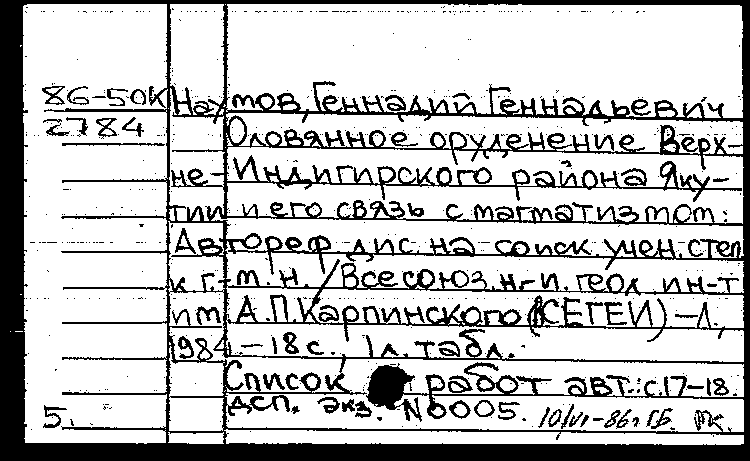 86-50К Наумов, Геннадий Геннадьевич
2784 Оловянное оруденение Верх-
не-Индигирского района Яку-
тии и его связь с магматизмом:
Автореф. дис. на соиск. учен. степ
к. г.-м. н. / Всесоюз. н.-и. геол. ин-т
им. А.П. Карпинского (ВСЕГЕИ) – Л.,
1984 – 18 с., 1 л. табл.
Список работ авт.: с. 17-18.
ДСП. экз. №0005. 10/VI-86г.
5.